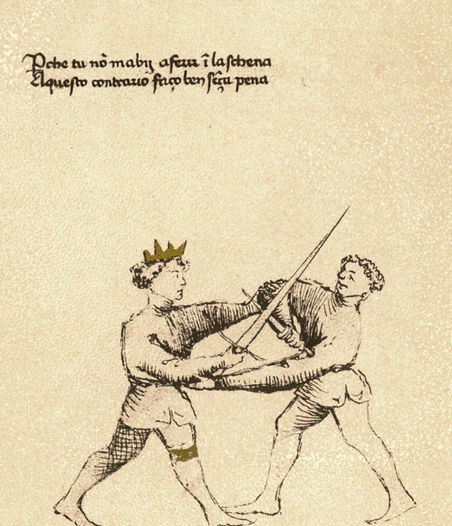 Pche tu nō mabij a ferir ī la schena
Aquesto contrario faço ben sēça pena